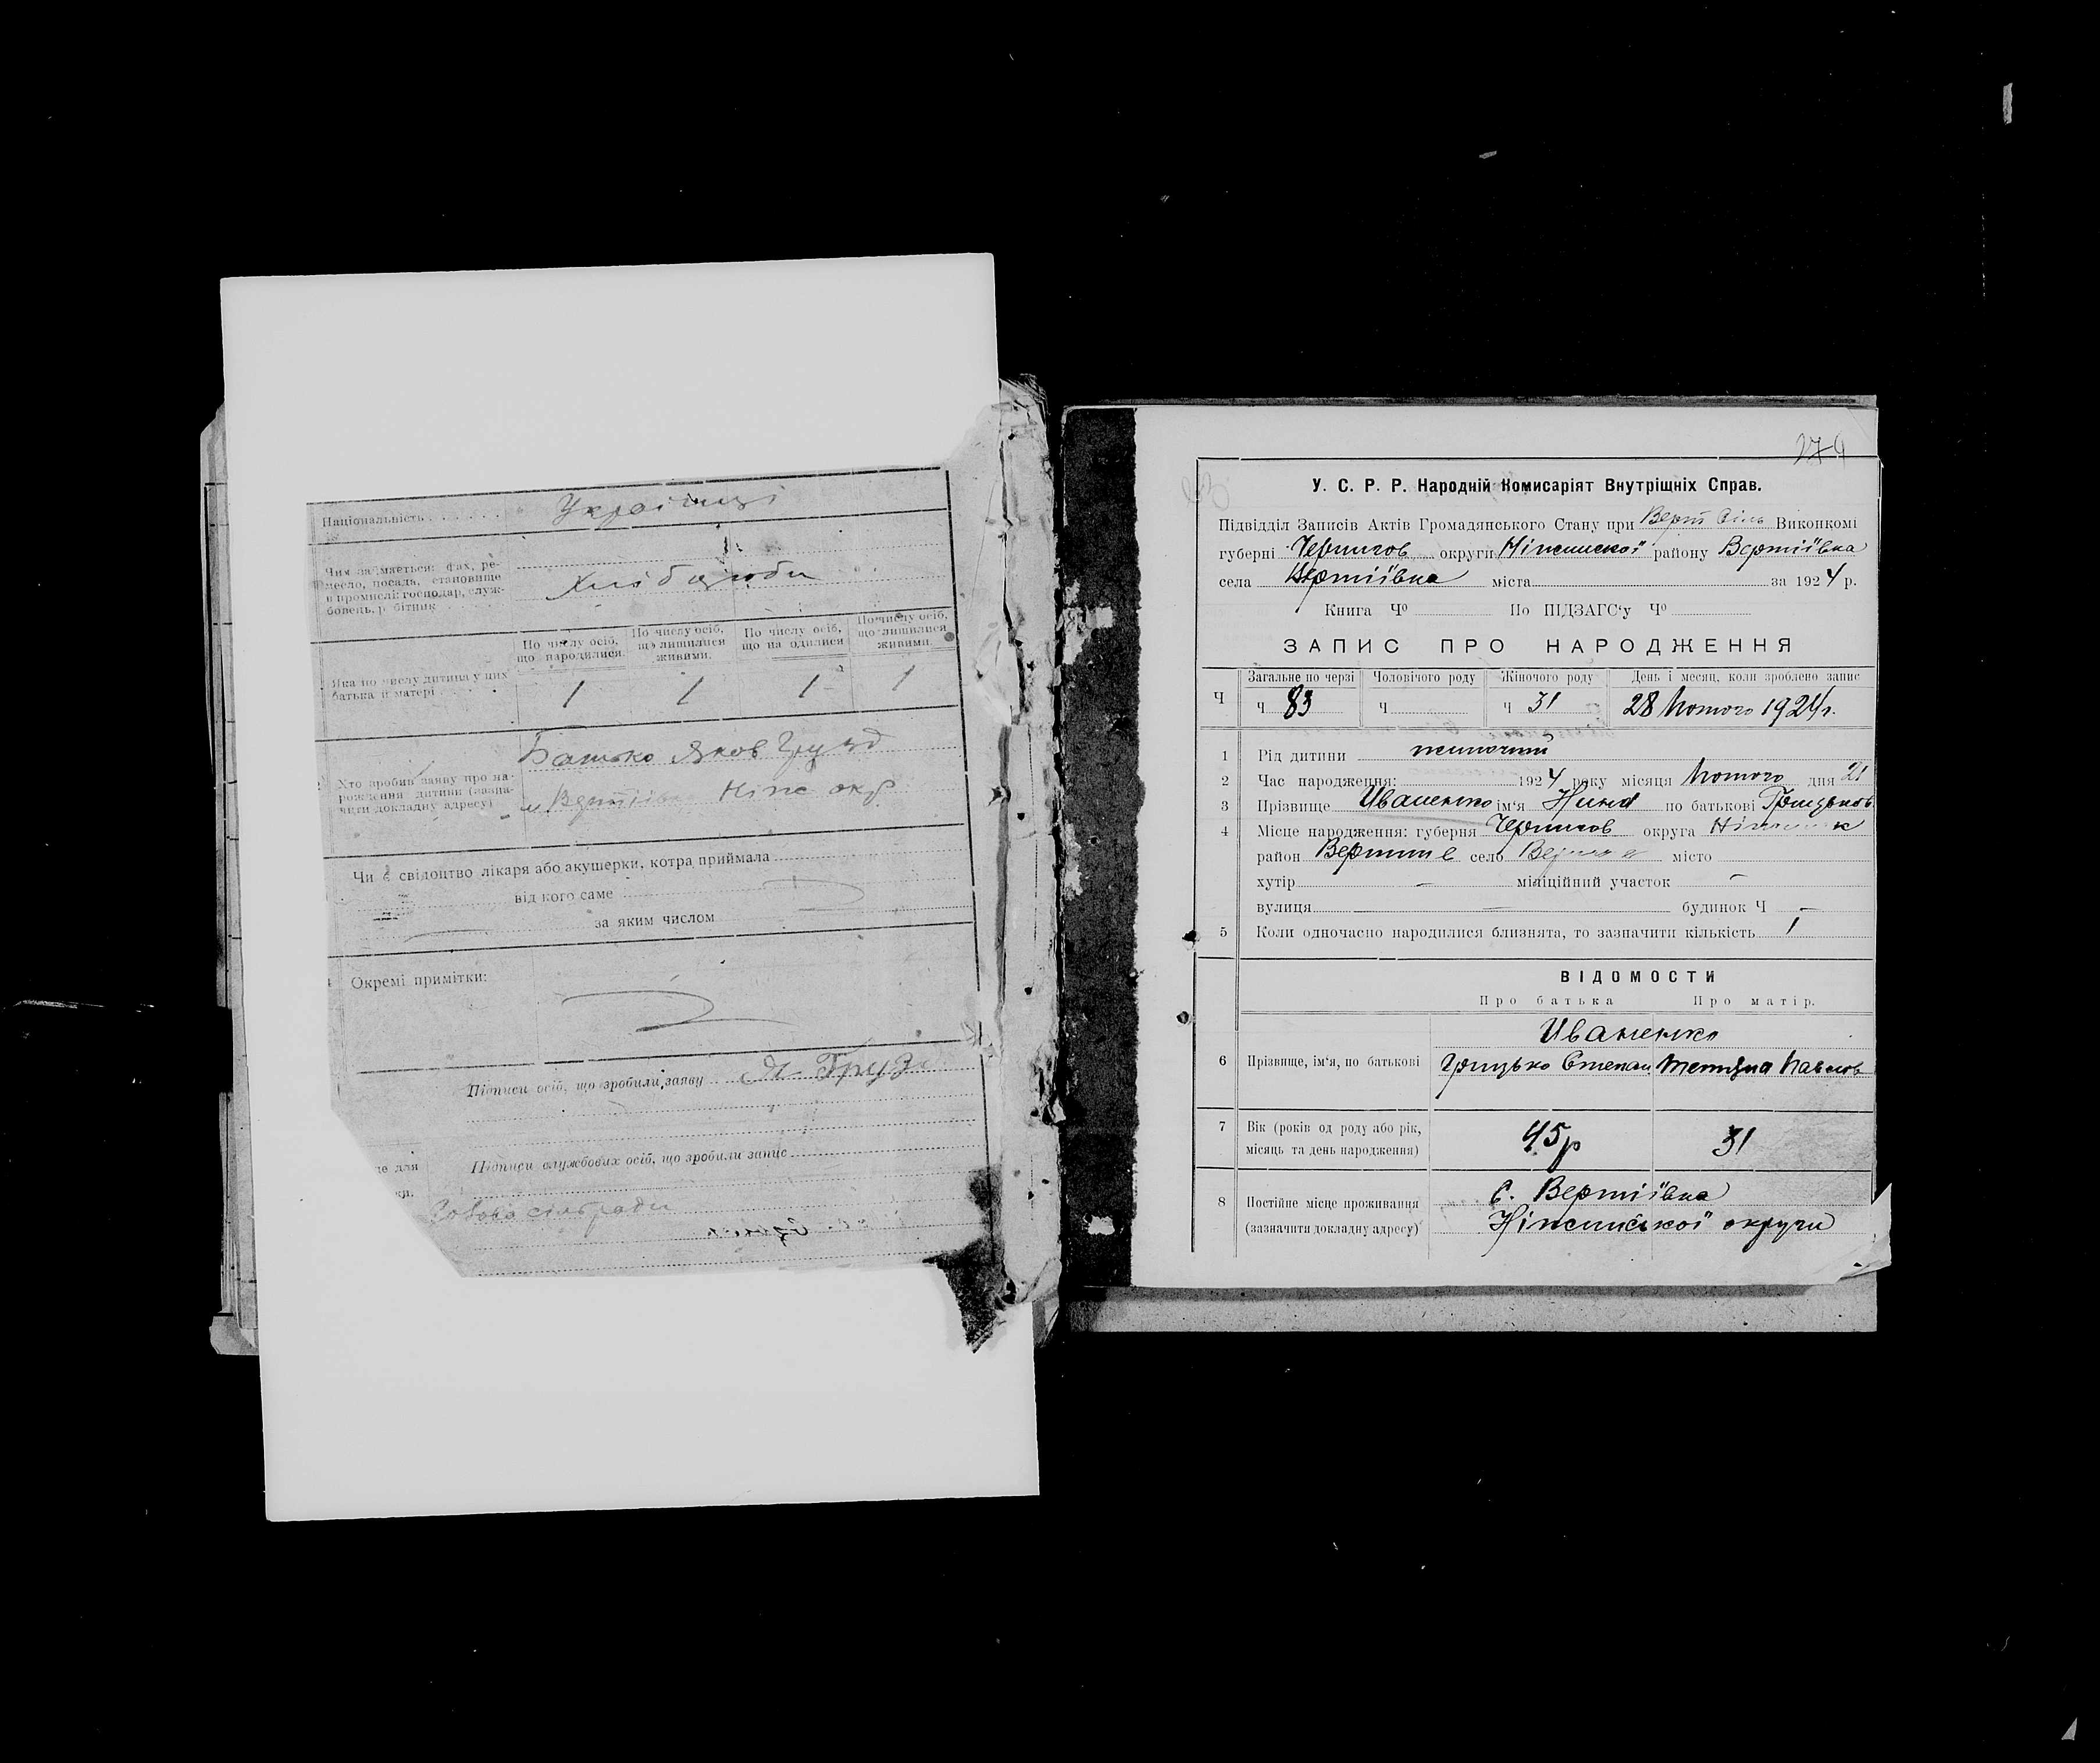 Національність . . . . . . Українці
Чим займається: фах, ре-
месло, посада, становище
в промислі: господар, служ-
бовець, робітник
Хлібороби
По числу осіб, що народилися. По числу осіб, що лишилися живими. По числу осіб, що на одилися По числу осіб, що лишилися живими.
Яка по числу дитина у цих
батька й матері . . . . 1 1 1 1
Хто зробив заяву про на-
рождення дитини (зазна-
чити докладну адресу)
Батько Яков Грузд
м Вертіївка Ніж окр
Чи є свідоцтво лікаря або акушерки, котра приймала
від кого саме
за яким числом
Окремі примітки:
Підписи осіб, що зробили заяву Я Грузд
Підписи службових осіб, що зробили запис
це для
ки.
Голова сільради
274
У. С. Р. Р. Народній Комисаріят Внутріщніх Справ.
Підвідділ Записів Актів Громадянського Стану при Верт Сіль Виконкомі
губерні Чернигов округи Ніжинскої району Вертіївка
села Вертіївка міста за 1924 р.
Книга Чº По ПІДЗАГС‘у Чº
ЗАПИС ПРО НАРОДЖЕННЯ
Загальне по черзі Чоловічого роду Жіночого роду День і месяц, коли зроблено запис
Ч ч 83 ч ч 31 28 Лютого 1924 г.
1 Рід дитини жиночий
2 Час народження: 1924 року місяця Лютого дня 21
3 Прізвище Иваненко ім‘я Нина по батькові Грицьков
4 Місце народження: губерня Чернигов округа Ніжинск
район Вертиїв село місто
хутір — міліційний участок —
вулиця — будинок Ч —
5 Коли одночасно народилися близнята, то зазначити кількість 1
ВІДОМОСТИ
Про батька Про матір.
Иваненко
6 Прізвище, ім‘я, по батькові Грицько Степан Тетяна Павлов
7 Вік (років од роду або рік,
місяць та день народження) 45р 31
8 Постійне місце проживання
(зазначити докладну адресу)
С. Вертіївка
Ніжинської округи